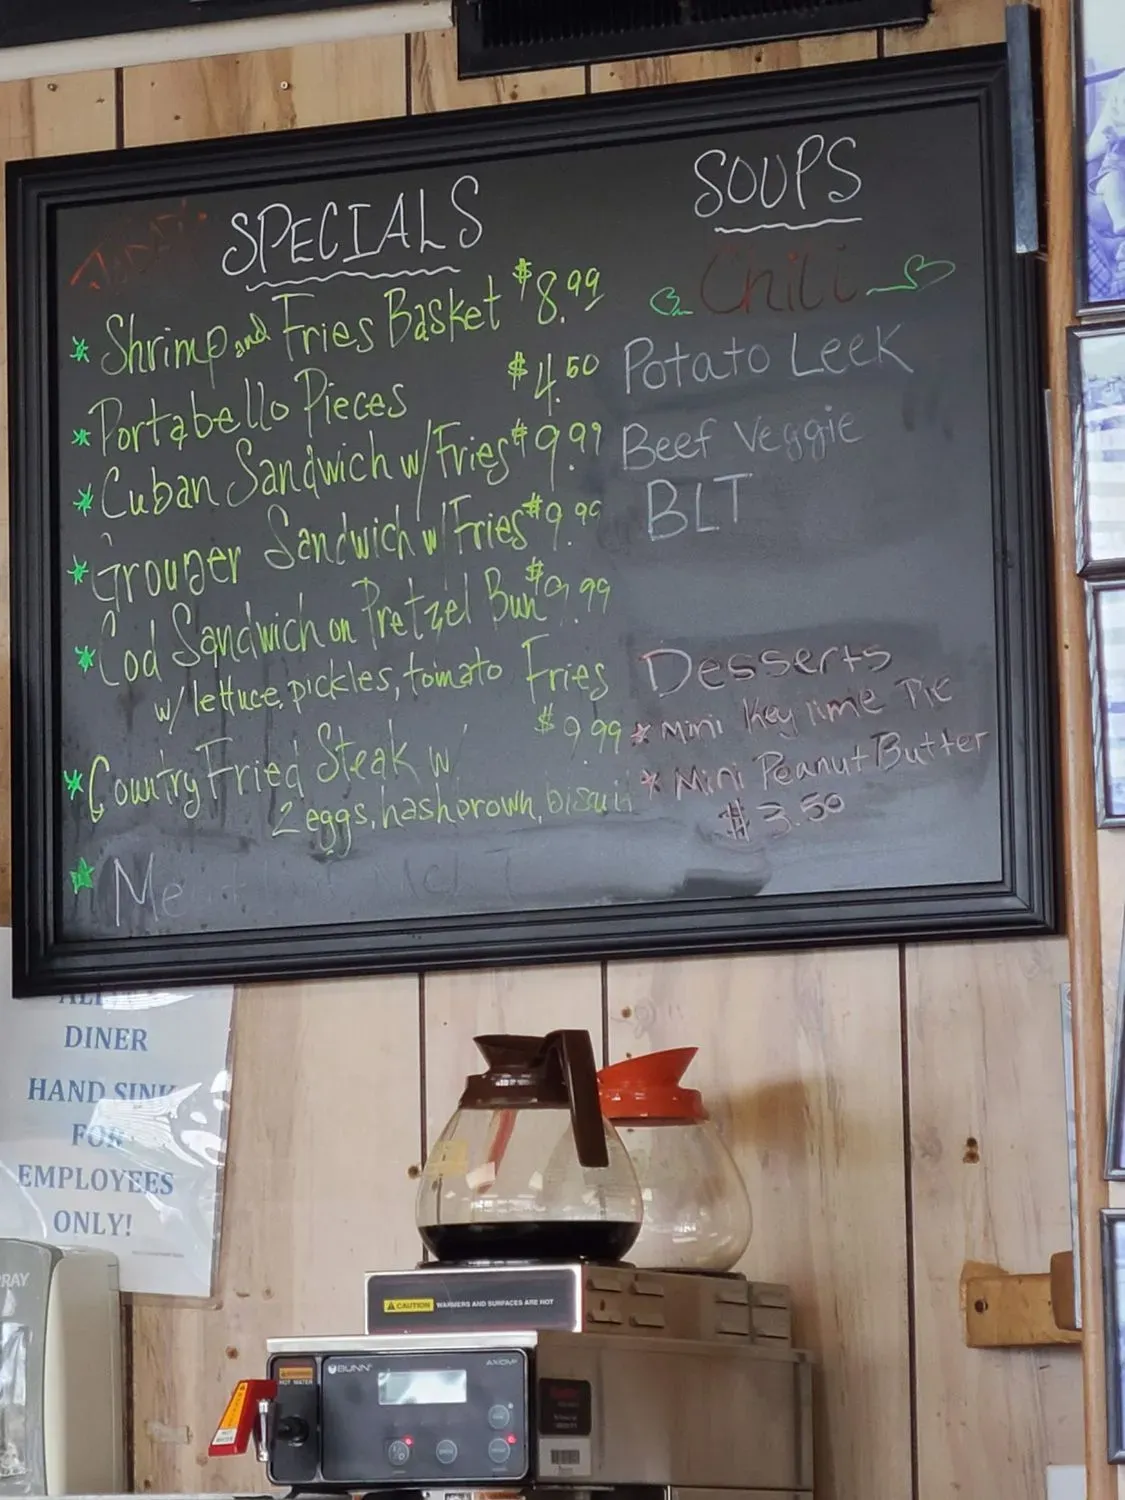 TODAY'S
SPECIALS
* Shrimp and Fries Basket $8.99
* Portabello Pieces $4.50
* Cuban Sandwich w/Fries $9.99
* Grouper Sandwich w/Fries $9.99
* Cod Sandwich on Pretzel Bun $9.99
w/ lettuce, pickles, tomato Fries
* Country Fried Steak w/ $9.99
2 eggs, hashbrown, biscuit
SOUPS
Chili
Potato Leek
Beef Veggie
BLT
Desserts
* Mini Key lime Pie
* Mini Peanut Butter
$3.50
DINER
HAND SINK
FOR
EMPLOYEES
ONLY!
CAUTION WARMERS AND SURFACES ARE HOT
HOT WATER
BUNN
AXIOM